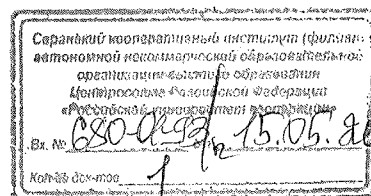 Саранский кооперативный институт (филиал)
автономной некоммерческой образовательной
организации высшего образования
Центросоюза Российской Федерации
«Российский университет кооперации»
Вх. № 15.05.
Кол-во док-тов 1